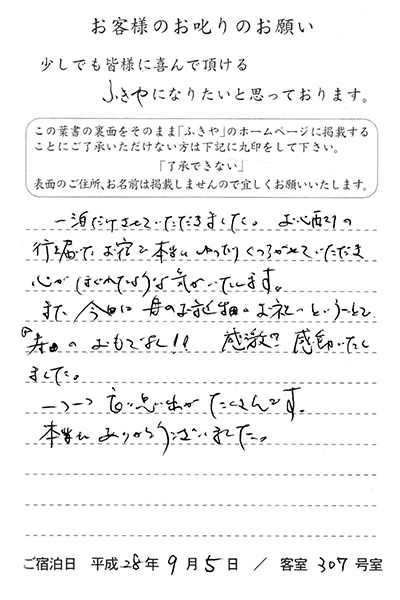 お客様のお叱りのお願い
少しでも皆様に喜んで頂ける
ふきやになりたいと思っております。
この葉書の裏面をそのまま「ふきや」のホームページに掲載する
ことにご了承いただけない方は下記に丸印をして下さい。
「了承できない」
表面のご住所、お名前は掲載しませんので宜しくお願いいたします。
一泊だけさせていただきました。お心配りの
行き届いたお宿で本当にゆったりくつろがせていただき
心がほぐれたような気がいたします。
また、今回は母のお誕生日のお祝いということで
おもてなし!! 感激? 感動いたし
ました。
一つ一つ良い思い出がたくさんです。
本当にありがとうございました。
ご宿泊日 平成28年9月5日 / 客室 307号室